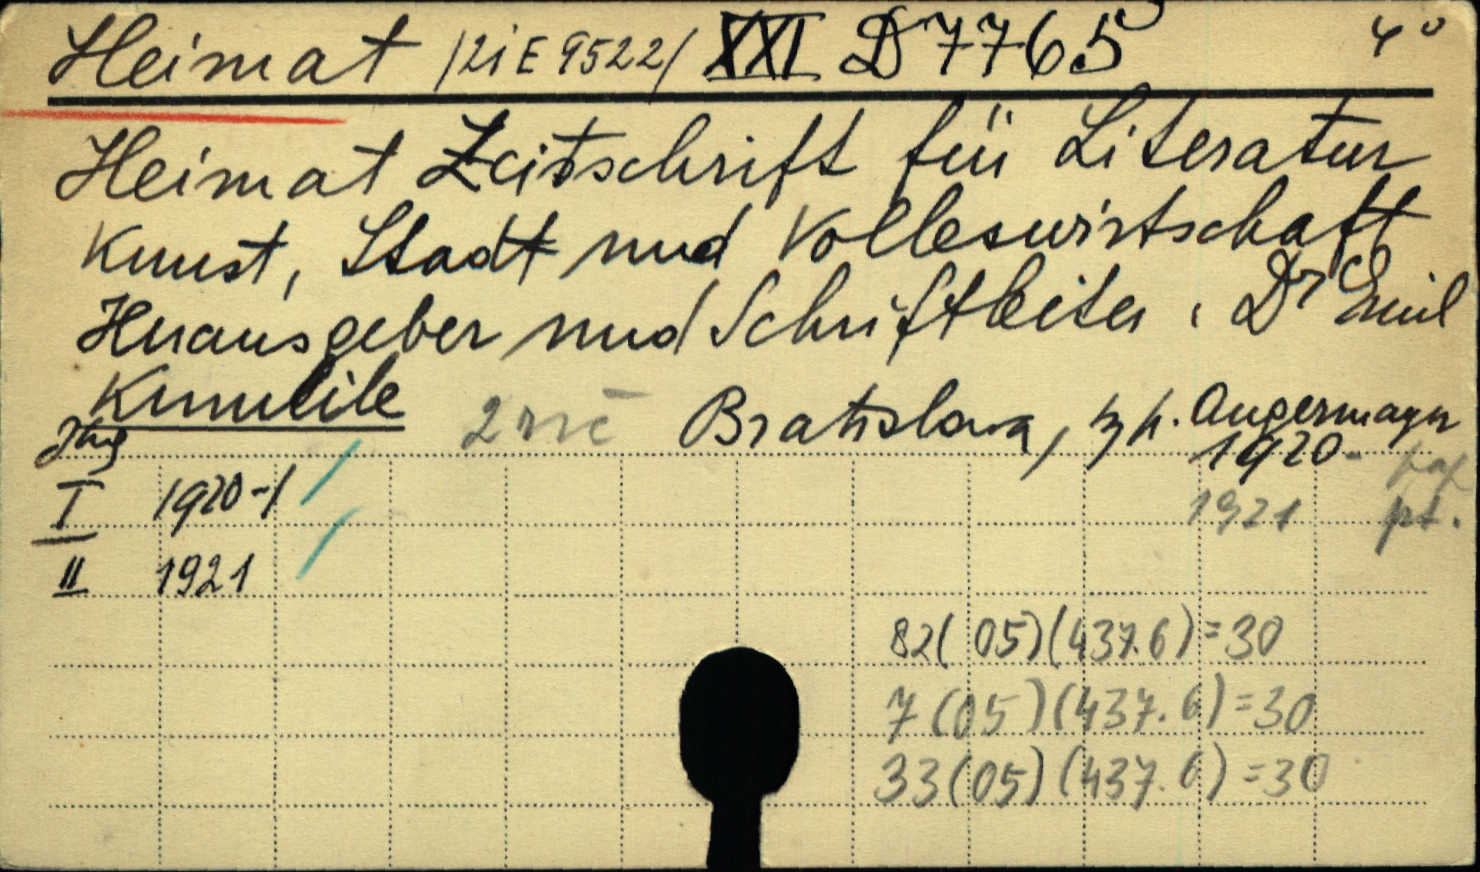 Heimat /21 E 9522/ XXI D 7765 4°
Heimat Zeitschrift für Literatur
Kunst, Stadt und Volkswirtschaft
Herausgeber und Schriftleiter: Dr Emil
Kumlik 2 roč Bratislava, Angermayer
Jhg 1920-
I 1920-1 1921 pt.
II 1921
82(05)(437.6)=30
7(05)(437.6)=30
33(05)(437.6)=30